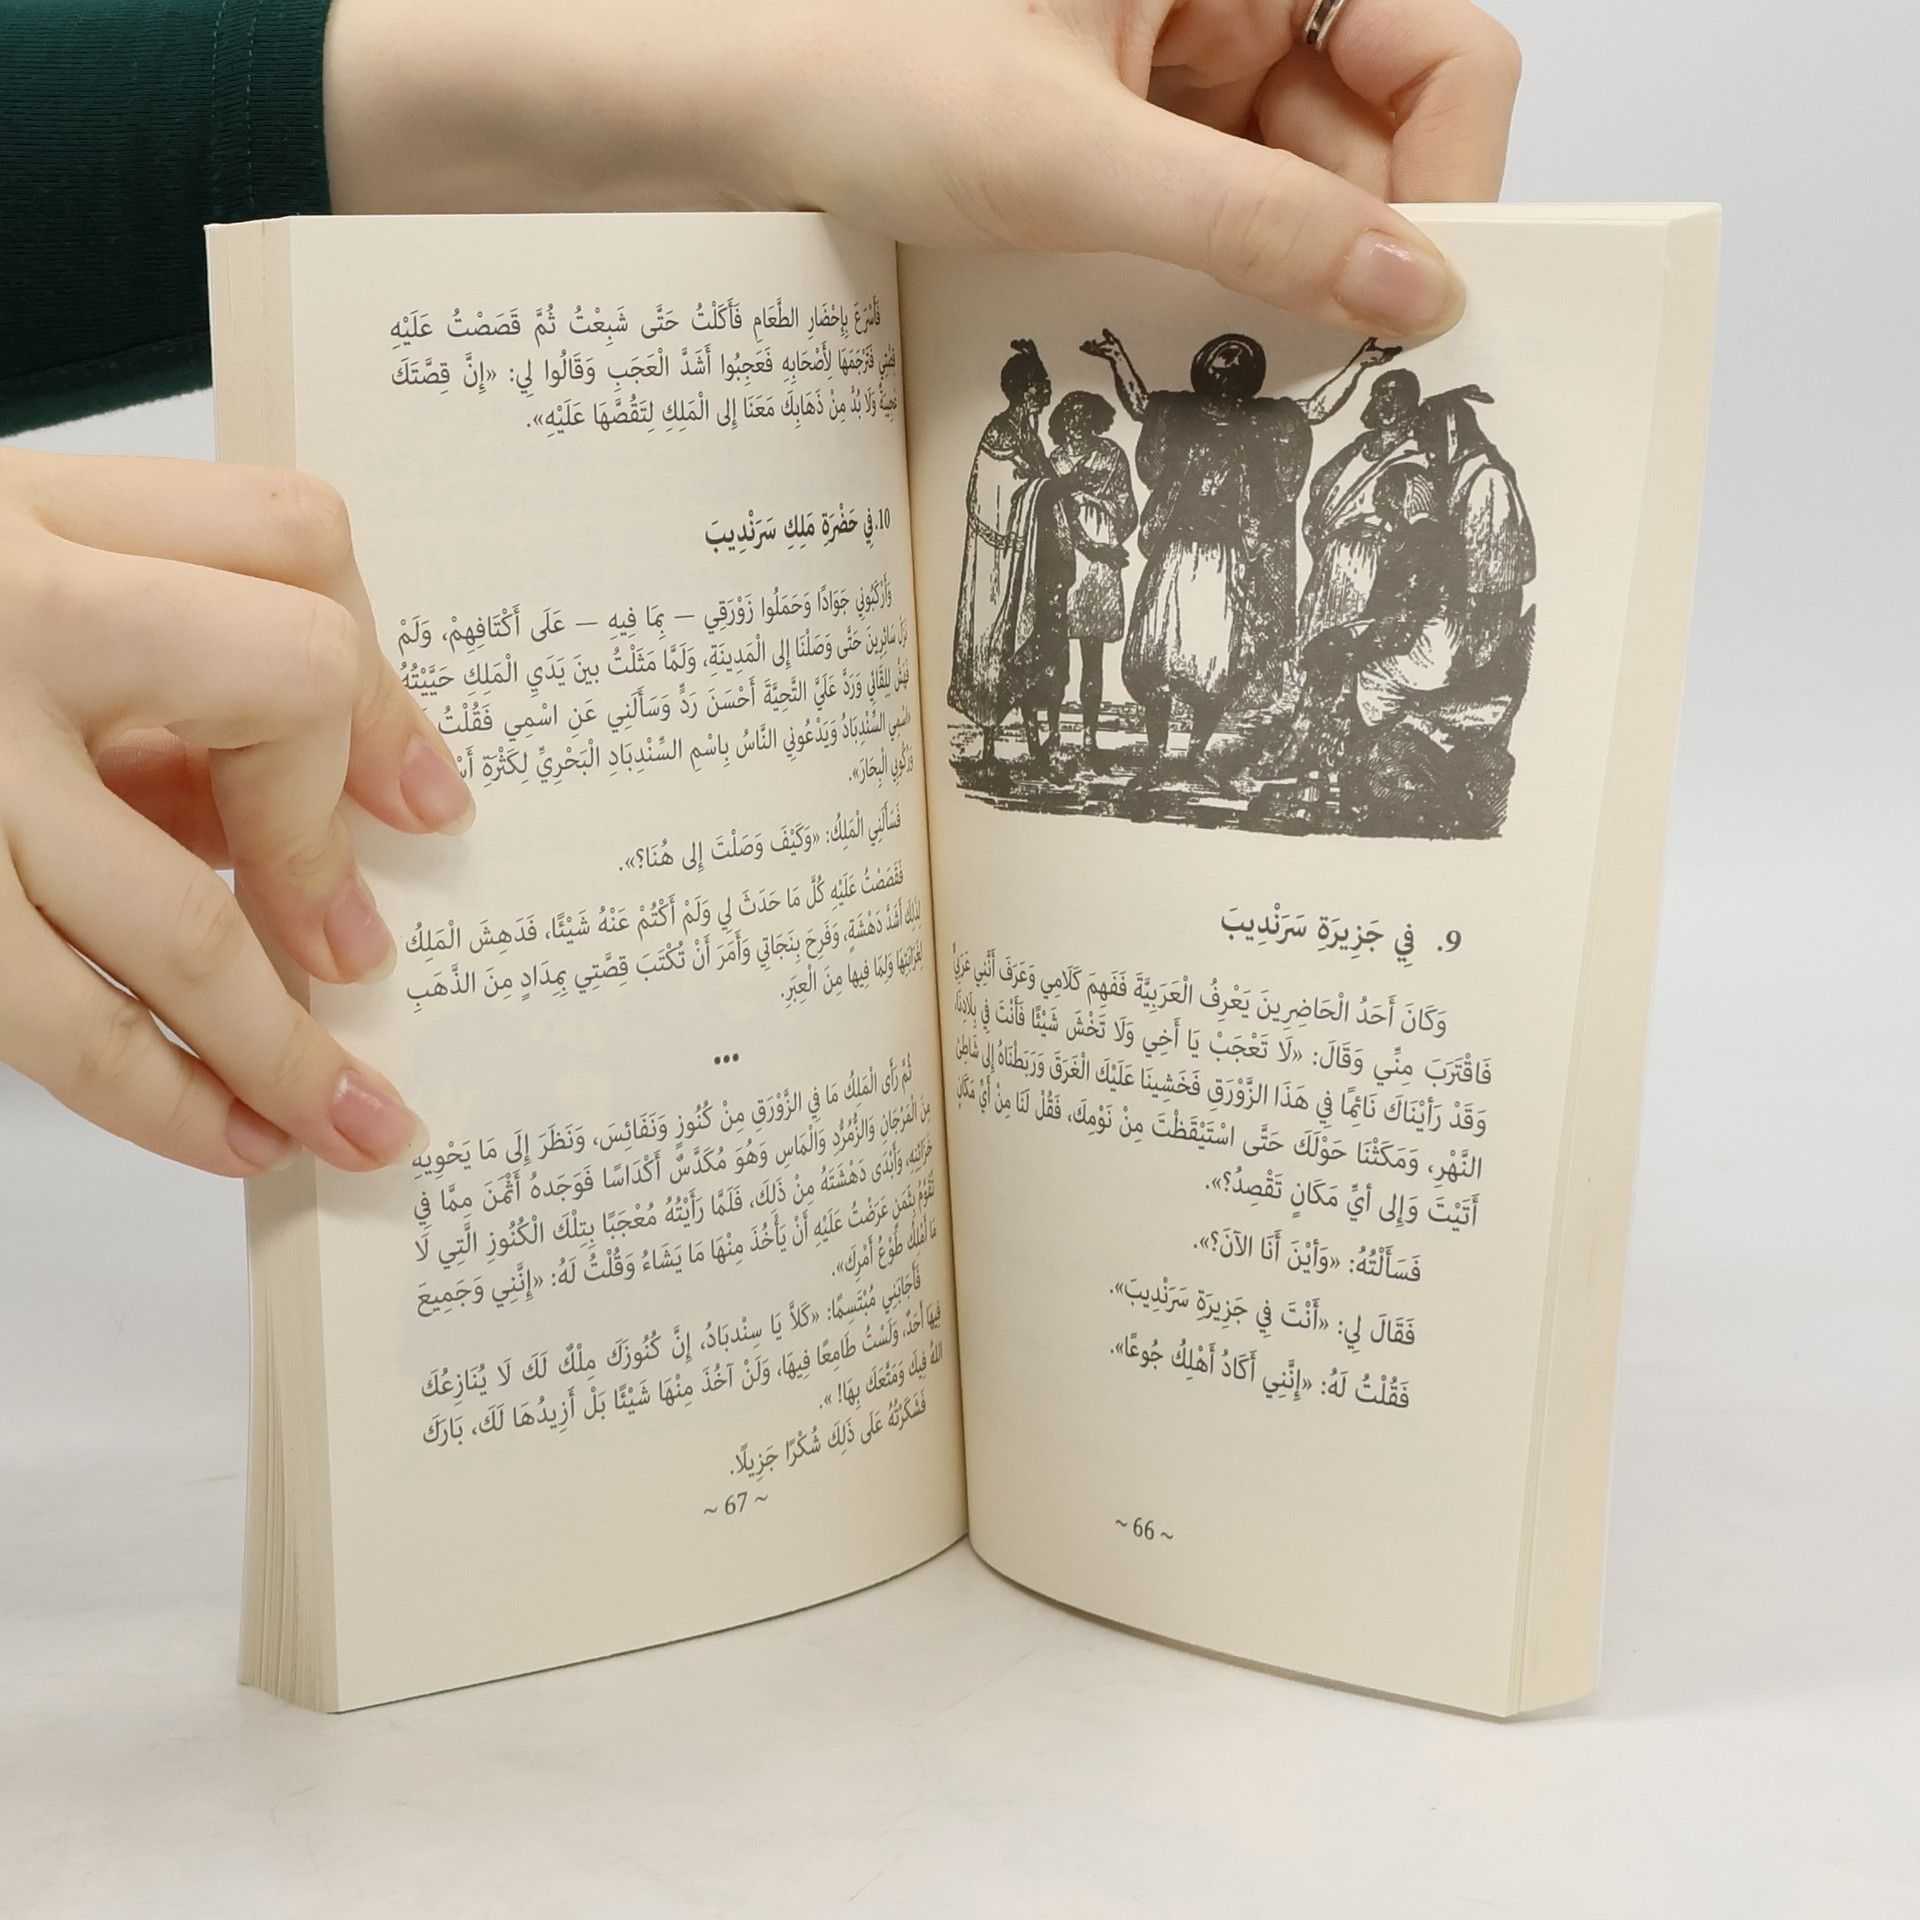 9. فِي جَزِيرَةِ سَرَنْدِيبَ
وَكَانَ أَحَدُ الْحَاضِرِينَ يَعْرِفُ الْعَرَبِيَّةَ فَفَهِمَ كَلَامِي وَعَرَفَ أَنَّنِي عَرَبِيٌّ
فَاقْتَرَبَ مِنِّي وَقَالَ: «لَا تَعْجَبْ يَا أَخِي وَلَا تَخْشَ شَيْئًا فَأَنْتَ فِي بِلَادِنَا،
وَقَدْ رَأَيْنَاكَ نَائِمًا فِي هَذَا الزَّوْرَقِ فَخَشِينَا عَلَيْكَ الْغَرَقَ وَرَبَطْنَاهُ إِلى شَاطِئِ
النَّهْرِ، وَمَكَثْنَا حَوْلَكَ حَتَّى اسْتَيْقَظْتَ مِنْ نَوْمِكَ، فَقُلْ لَنَا مِنْ أَيِّ مَكَانٍ
أَتَيْتَ وَإِلى أَيِّ مَكَانٍ تَقْصِدُ؟».
فَسَأَلْتُهُ: «وَأَيْنَ أَنَا الآنَ؟».
فَقَالَ لِي: «أَنْتَ فِي جَزِيرَةِ سَرَنْدِيبَ».
فَقُلْتُ لَهُ: «إِنَّنِي أَكَادُ أَهْلِكُ جُوعًا».
~ 66 ~
فَأَسْرَعَ بِإِحْضَارِ الطَّعَامِ فَأَكَلْتُ حَتَّى شَبِعْتُ ثُمَّ قَصَصْتُ عَلَيْهِ
قِصَّتِي فَتَرْجَمَهَا لِأَصْحَابِهِ فَعَجِبُوا أَشَدَّ الْعَجَبِ وَقَالُوا لِي: «إِنَّ قِصَّتَكَ
عَجِيبَةٌ وَلَا بُدَّ مِنْ ذَهَابِكَ مَعَنَا إِلى الْمَلِكِ لِتَقُصَّهَا عَلَيْهِ».
10. فِي حَضْرَةِ مَلِكِ سَرَنْدِيبَ
وَأَرْكَبُونِي جَوَادًا وَحَمَلُوا زَوْرَقِي — بِمَا فِيهِ — عَلَى أَكْتَافِهِمْ، وَلَمْ
نَزَلْ سَائِرِينَ حَتَّى وَصَلْنَا إِلى الْمَدِينَةِ، وَلَمَّا مَثَلْتُ بينَ يَدَيِ الْمَلِكِ حَيَّيْتُهُ
فَهَشَّ لِلِقَائِي وَرَدَّ عَلَيَّ التَّحِيَّةَ أَحْسَنَ رَدٍّ وَسَأَلَنِي عَنِ اسْمِي فَقُلْتُ
«اسْمِي السِّنْدِبَادُ وَيَدْعُونِي النَّاسُ بِاسْمِ السِّنْدِبَادِ الْبَحْرِيِّ لِكَثْرَةِ
وَرُكُوبِي الْبِحَارَ».
فَسَأَلَنِي الْمَلِكُ: «وَكَيْفَ وَصَلْتَ إِلى هُنَا؟».
فَقَصَصْتُ عَلَيْهِ كُلَّ مَا حَدَثَ لِي وَلَمْ أَكْتُمْ عَنْهُ شَيْئًا، فَدَهِشَ الْمَلِكُ
لِذَلِكَ أَشَدَّ دَهْشَةٍ، وَفَرِحَ بِنَجَاتِي وَأَمَرَ أَنْ تُكْتَبَ قِصَّتِي بِمِدَادٍ مِنَ الذَّهَبِ
لِغَرَابَتِهَا وَلِمَا فِيها مِنَ الْعِبَرِ.
•••
ثُمَّ رَأَى الْمَلِكُ مَا فِي الزَّوْرَقِ مِنْ كُنُوزٍ وَنَفَائِسَ، وَنَظَرَ إِلَى مَا يَحْوِيهِ
مِنَ الْمَرْجَانِ وَالزُّمُرُّدِ وَالْمَاسِ وَهُوَ مُكَدَّسٌ أَكْدَاسًا فَوَجَدهُ أَثْمَنَ مِمَّا فِي
خَزَائِنِهِ، وَأَبْدَى دَهْشَتَهُ مِنْ ذَلِكَ، فَلَمَّا رَأَيْتُهُ مُعْجَبًا بِتِلْكَ الْكُنُوزِ الَّتِي لَا
تُقَوَّمُ بِثَمَنٍ عَرَضْتُ عَلَيْهِ أَنْ يَأْخُذَ مِنْهَا مَا يَشَاءُ وَقُلْتُ لَهُ: «إِنَّنِي وَجَمِيعَ
مَا أَمْلِكُ طَوْعُ أَمْرِكَ».
فَأَجَابَنِي مُبْتَسِمًا: «كَلاَّ يَا سِنْدبَادُ، إِنَّ كُنُوزَكَ مِلْكٌ لَكَ لَا يُنَازِعُكَ
فِيهَا أَحَدٌ، وَلَسْتُ طَامِعًا فِيهَا، وَلَنْ آخُذَ مِنْهَا شَيْئًا بَلْ أَزِيدُهَا لَكَ، بَارَكَ
اللهُ فِيكَ وَمَتَّعَكَ بِهَا! ».
فَشَكَرْتُهُ عَلَى ذَلِكَ شُكْرًا جَزِيلًا.
~ 67 ~